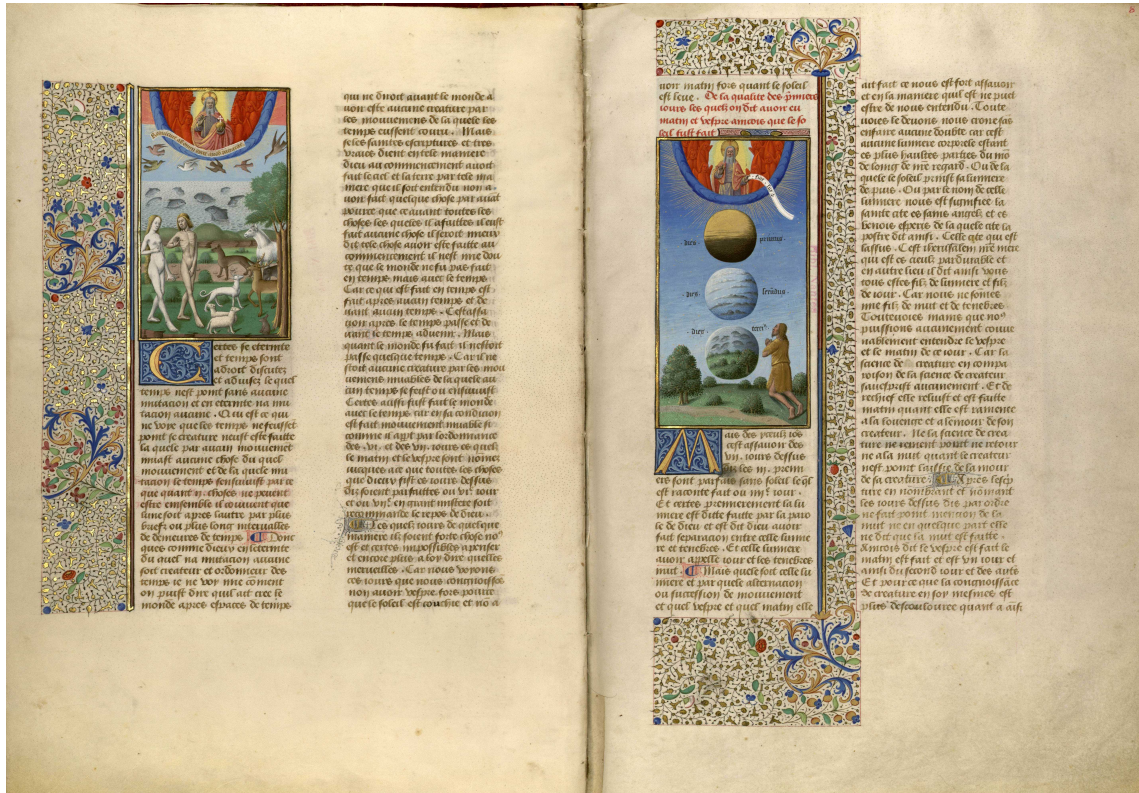 Certes se eternite
et temps sont
a droit discutez
et advisez le quel
temps nest point sans aucune
mutacion et en eternite na mu
tacion aucune. Qui est ce qui
ne voye que les temps neussent
point se creature neust este faitte
la quele par aucun mouvement
muast aucune chose du quel
mouvement et de la quele mu
tacion le temps sensuiuist par ce
que quant choses ne peuent
estre ensemble il couuient que
lune soit apres lautre par plus
briefz ou plus longz intervalles
de demeures de temps. Donc
ques comme dieu en leternite
du quel na mutacion aucune
soit createur et ordonneur des
temps ie ne voy mie coment
on puist dire quil ait cree le
monde apres espaces de temps
qui ne diroit auant le monde a
uoir este aucune creature par
les mouuemens de la quele les
temps eussent couru. Mais
se les saintes escriptures et tres
vraies dient en tele maniere
dieu au commencement auoit
fait le ciel et la terre par tele ma
niere que il soit entendu non a
uoir fait quelque chose par auant
pource que ce auant toutes les
choses les queles il a faittes il eust
fait aucune chose il seroit mieux
dit cele chose auoir este faitte au
commencement il nest mie dou
te que le monde ne fu pas fait
en temps mais auec le temps
Car ce qui est fait en temps est
fait apres aucun temps et de
uant aucun temps. Cest assa
uoir apres le temps passe et de
uant le temps aduenir. Mais
quant le monde fu fait il nestoit
passe quelque temps. Car il ne
stoit aucune creature par les mou
uemens muables de la quele au
cun temps se feist ou ensuiuist
Certes aussi fust fait le monde
auec le temps car en sa condicion
est fait mouuement muable si
comme il appert par lordonnance
des .vi. et des .vii. iours es quelz
le matin et le vespre sont nomez
iucques a ce que toutes les choses
que dieu fist es iours dessus
dis soient parfaittes ou vi. iour
et ou vii. en grant mistere soit
recommande le repos de dieu.
Les quelz iours de quelque
maniere ilz soient forte chose no
est et certes impossible a penser
et encore plus a loy dire quelles
merueilles. Car nous voyons
ces iours que nous congnoissons
non auoir vespre fors pource
que le soleil est couchie et no a
uoir matin fors quant le soleil
est leue. De la qualite des premiers
iours les quelz on dit auoir eu
matin et vespre aincois que le so
leil fust fait
dies primus
dies secundus
dies tercius
Mais des premiers iours
est assauoir des
.vii. iours dessus
dis les .iii. premi
ers sont parfais sans soleil le quel
est raconte fait ou iiii. iour.
Et certes premierement la lu
miere est ditte faitte par la paro
le de dieu et est dit dieu auoir
fait separacion entre celle lumie
re et tenebres. Et celle lumiere
auoir appelle iour et les tenebres
nuit. Mais quele soit celle lu
miere et par quele alternacion
ou succession de mouuement
et quel vespre et quel matin elle
ait fait ce nous est fort assauoir
et en la maniere quil est ne puet
estre de nous entendu. Toute
uoies le deuons nous croire sans
en faire aucune doubte car cest
aucune lumiere corporele estant
es plus haultes parties du mon
de loing de nre regard. Ou de la
quele le soleil prinst sa lumiere
de puis. Ou par le nom de celle
lumiere nous est signifiee la
sainte cite es sains angelz et es
benois esperis de la quele cite la
postre dit ainsi. Celle cite qui est
lassus. Cest iherusalem nre mere
qui est es cieulx pardurable et
en autre lieu il dit ainsi vous
tous estes filz de lumiere et filz
de iour. Car nous ne somes
mie filz de nuit et de tenebres
Touteuoies mains que nous
puissions aucunement conue
nablement entendre le vespre
et le matin de ce iour. Car la
science de creature en compa
roison de la science de createur
sauesprist aucunement. Et de
rechief elle reluist et est faitte
matin quant elle est ramenee
a la louenge et a lamour de son
createur. Ne la science de crea
ture ne reuient point ne retour
ne a la nuit quant le createur
nest point laissie de lamour
de sa creature. Apres lescrip
ture en nombrant et nomant
les iours dessus dis par ordre
ne fait point mencion de la
nuit ne en quelque part elle
ne dit que la nuit est faitte.
Aincois dit le vespre est fait le
matin est fait et est vn iour et
ainsi du second iour et des autres
Et pource que la congnoissance
de creature en soy mesmes est
plus descoulouree quant a ainsi